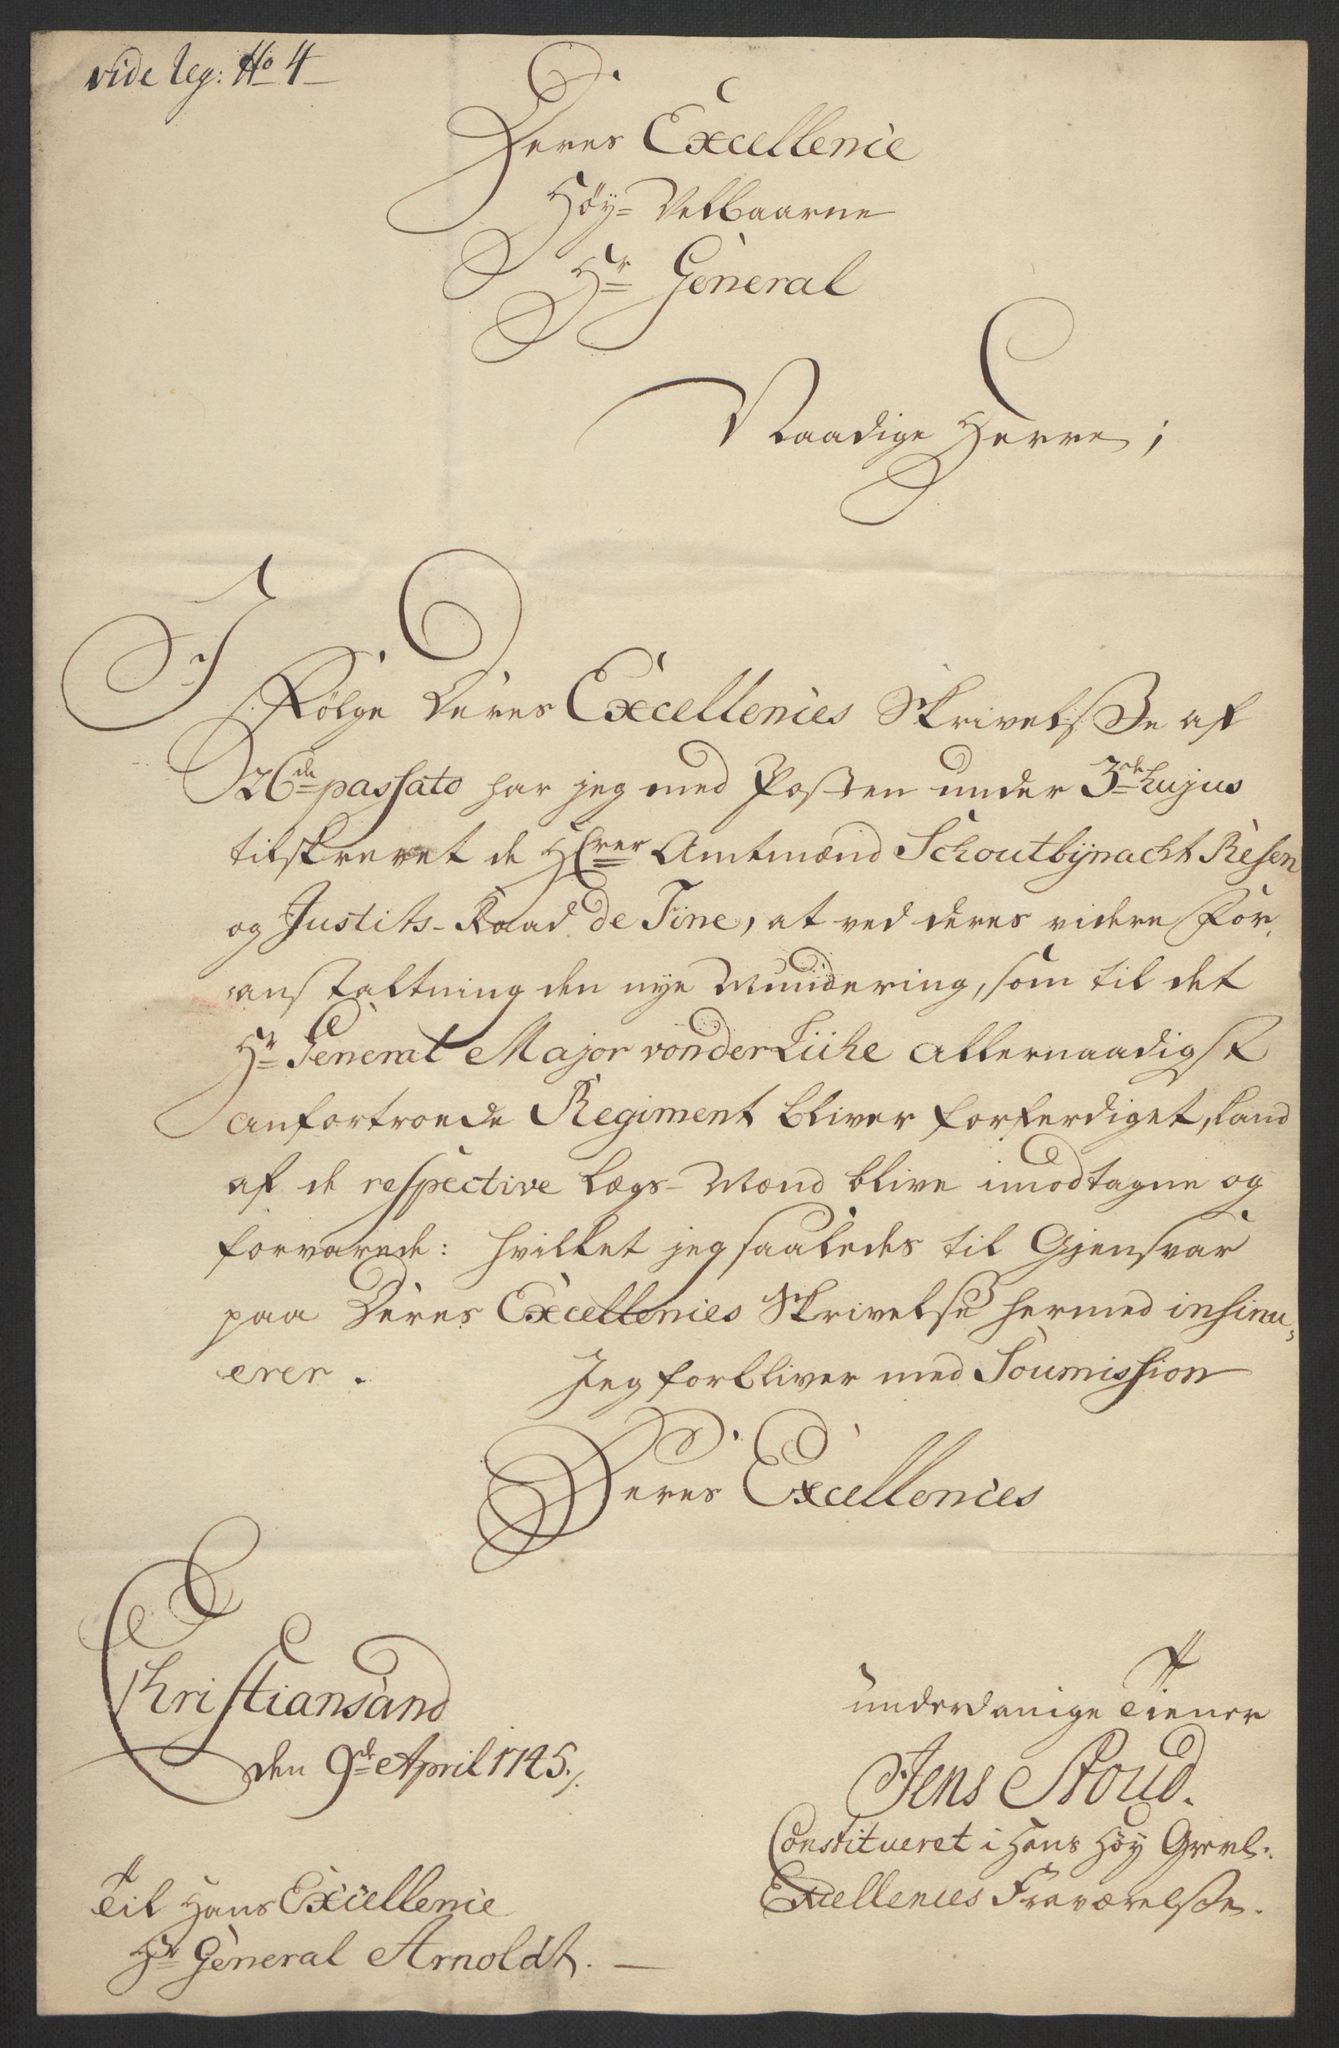 vide leg: No 4
Deres Excellence
Høy- Velbaarne
Hr General
Naadige Herre;
I Følge Deres Excellences Skrivelsse af
26de passato har jeg med Posten under 3de hujus
tilskrevet de Hrer Amtmænd Schoutbynacht Resen
og Justits-Raad de Tine, at ved deres videre For-
anstaltning den nye Mundering, som til det
Hr General Major von der Lühe allernaadigst
anfortroede Regiment bliver forferdiget, kand
af de respective Lægs-Mænd blive imodtagne og
forvarede: hvilket jeg saaledes til Gjensvar
paa Deres Excellences Skrivelse hermed insinu-
erer. Jeg forbliver med Soumission
Deres Excellences
Christiansand
den 9de April 1745.
underdanige Tiener
Jens Stoud.
Constitueret i Hans Høy Grevl.
Excellences Fraværelsse.
Til Hans Excellence
Hr General Arnoldt.